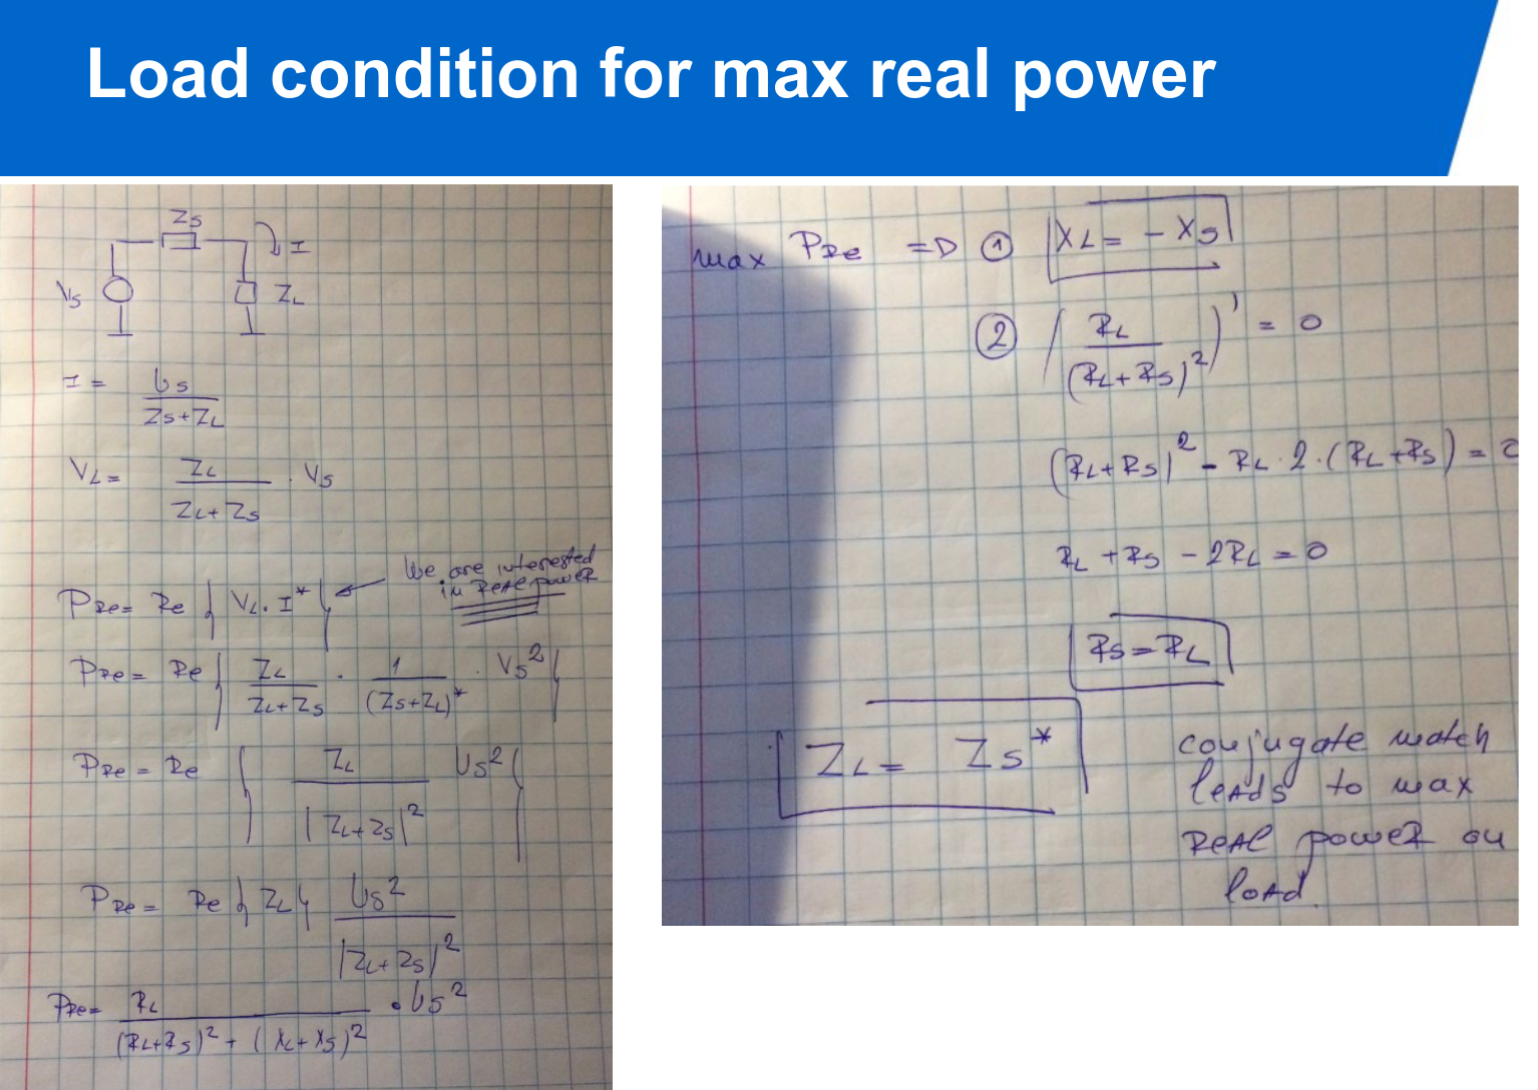 Load condition for max real power
Zs
I
Vs
ZL
I = Us / (Zs+ZL)
VL = ZL / (ZL+Zs) · Vs
We are interested
in Real power
PRe = Re { VL · I* }
PRe = Re { ZL / (ZL+Zs) · 1 / (Zs+ZL)* · Vs² }
PRe = Re { ZL / |ZL+Zs|² Us² }
PRe = Re { ZL } Us² / |ZL+Zs|²
PRe = RL / ((RL+Rs)² + (XL+Xs)²) · Us²
max PRe => ① XL = - Xs
② (RL / (RL+Rs)²)' = 0
(RL+Rs)² - RL · 2 · (RL+Rs) = 0
RL + Rs - 2RL = 0
Rs = RL
ZL = Zs*
conjugate match
leads to max
Real power on
load.